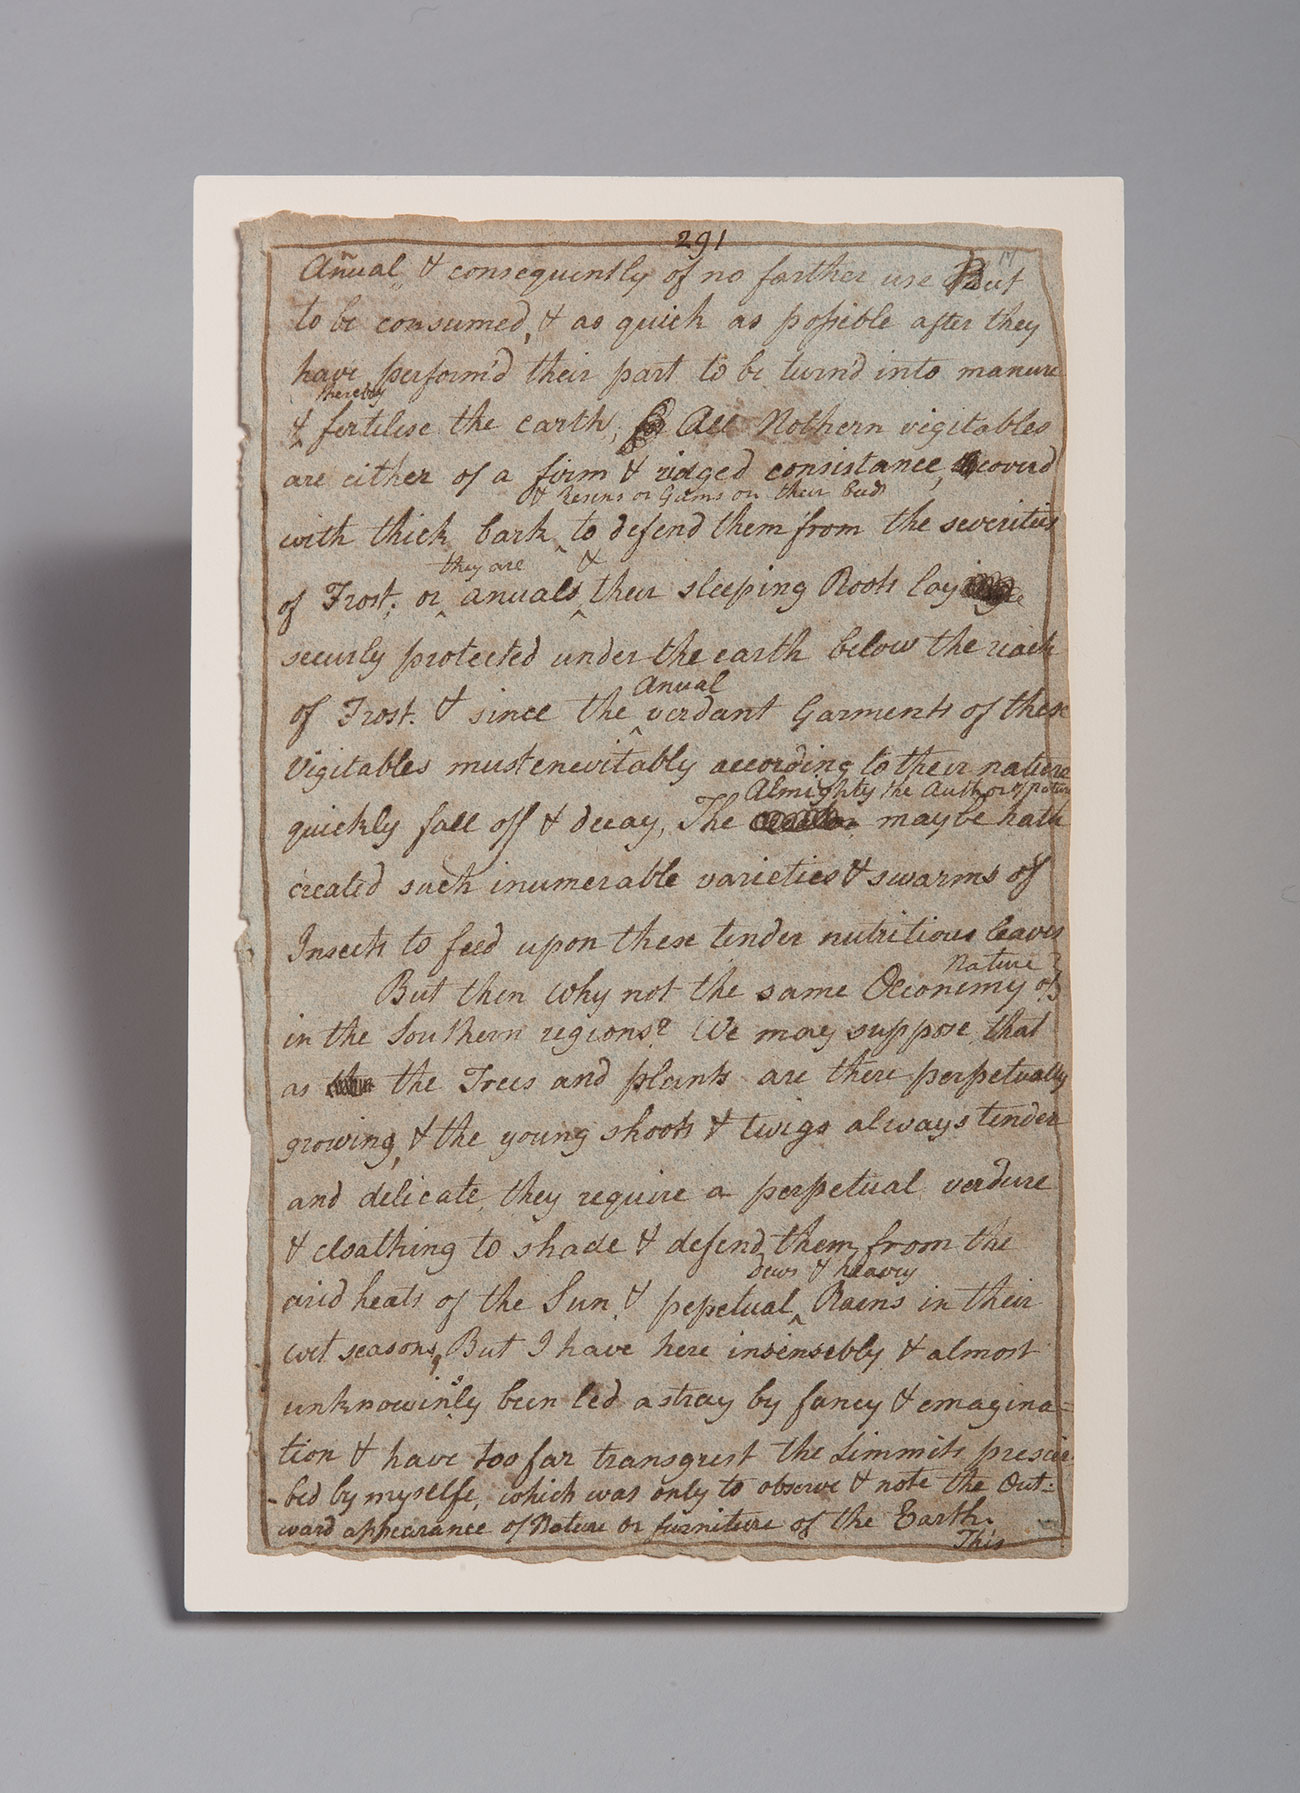 291
17
Añual & consequently of no farther use But
to be consumed, & as quick as posſible after they
have perform'd their part to be turn'd into manure
thereby
& fertilise the earth, All Nothern vigitables
are either of a firm & ridged consistance, coverd
& Resins or Gums on their buds
with thick bark to defend them from the severities
they are &
of Frost; or anuals, their sleeping Roots lay
securly protected under the earth below the reach
Anual
of Frost. & since the verdant Garments of these
Vigitables must enevitably according to their nature
Almighty the Author of nature
quickly fall off & decay, The may be hath
created such inumerable varieties & swarms of
Insects to feed upon these tender nutritious leaves
Nature?
But then why not the same Œconemy of
in the Southern regions? We may suppose, that
as the Trees and plants are there perpetually
growing, & the young shoots & twigs always tender
and delicate, they require a perpetual verdure
& cloathing to shade & defend them from the
dews & heavy
arid heats of the Sun & pepetual Rains in their
wet seasons, But I have here insensebly & almost
unknowingly been led astray by fancy & emagina=
tion & have too far transgrest the Limmits prescri
-bed by myselfe, which was only to observe & note the Out=
ward appearance of Nature or furniture of the Earth.
This